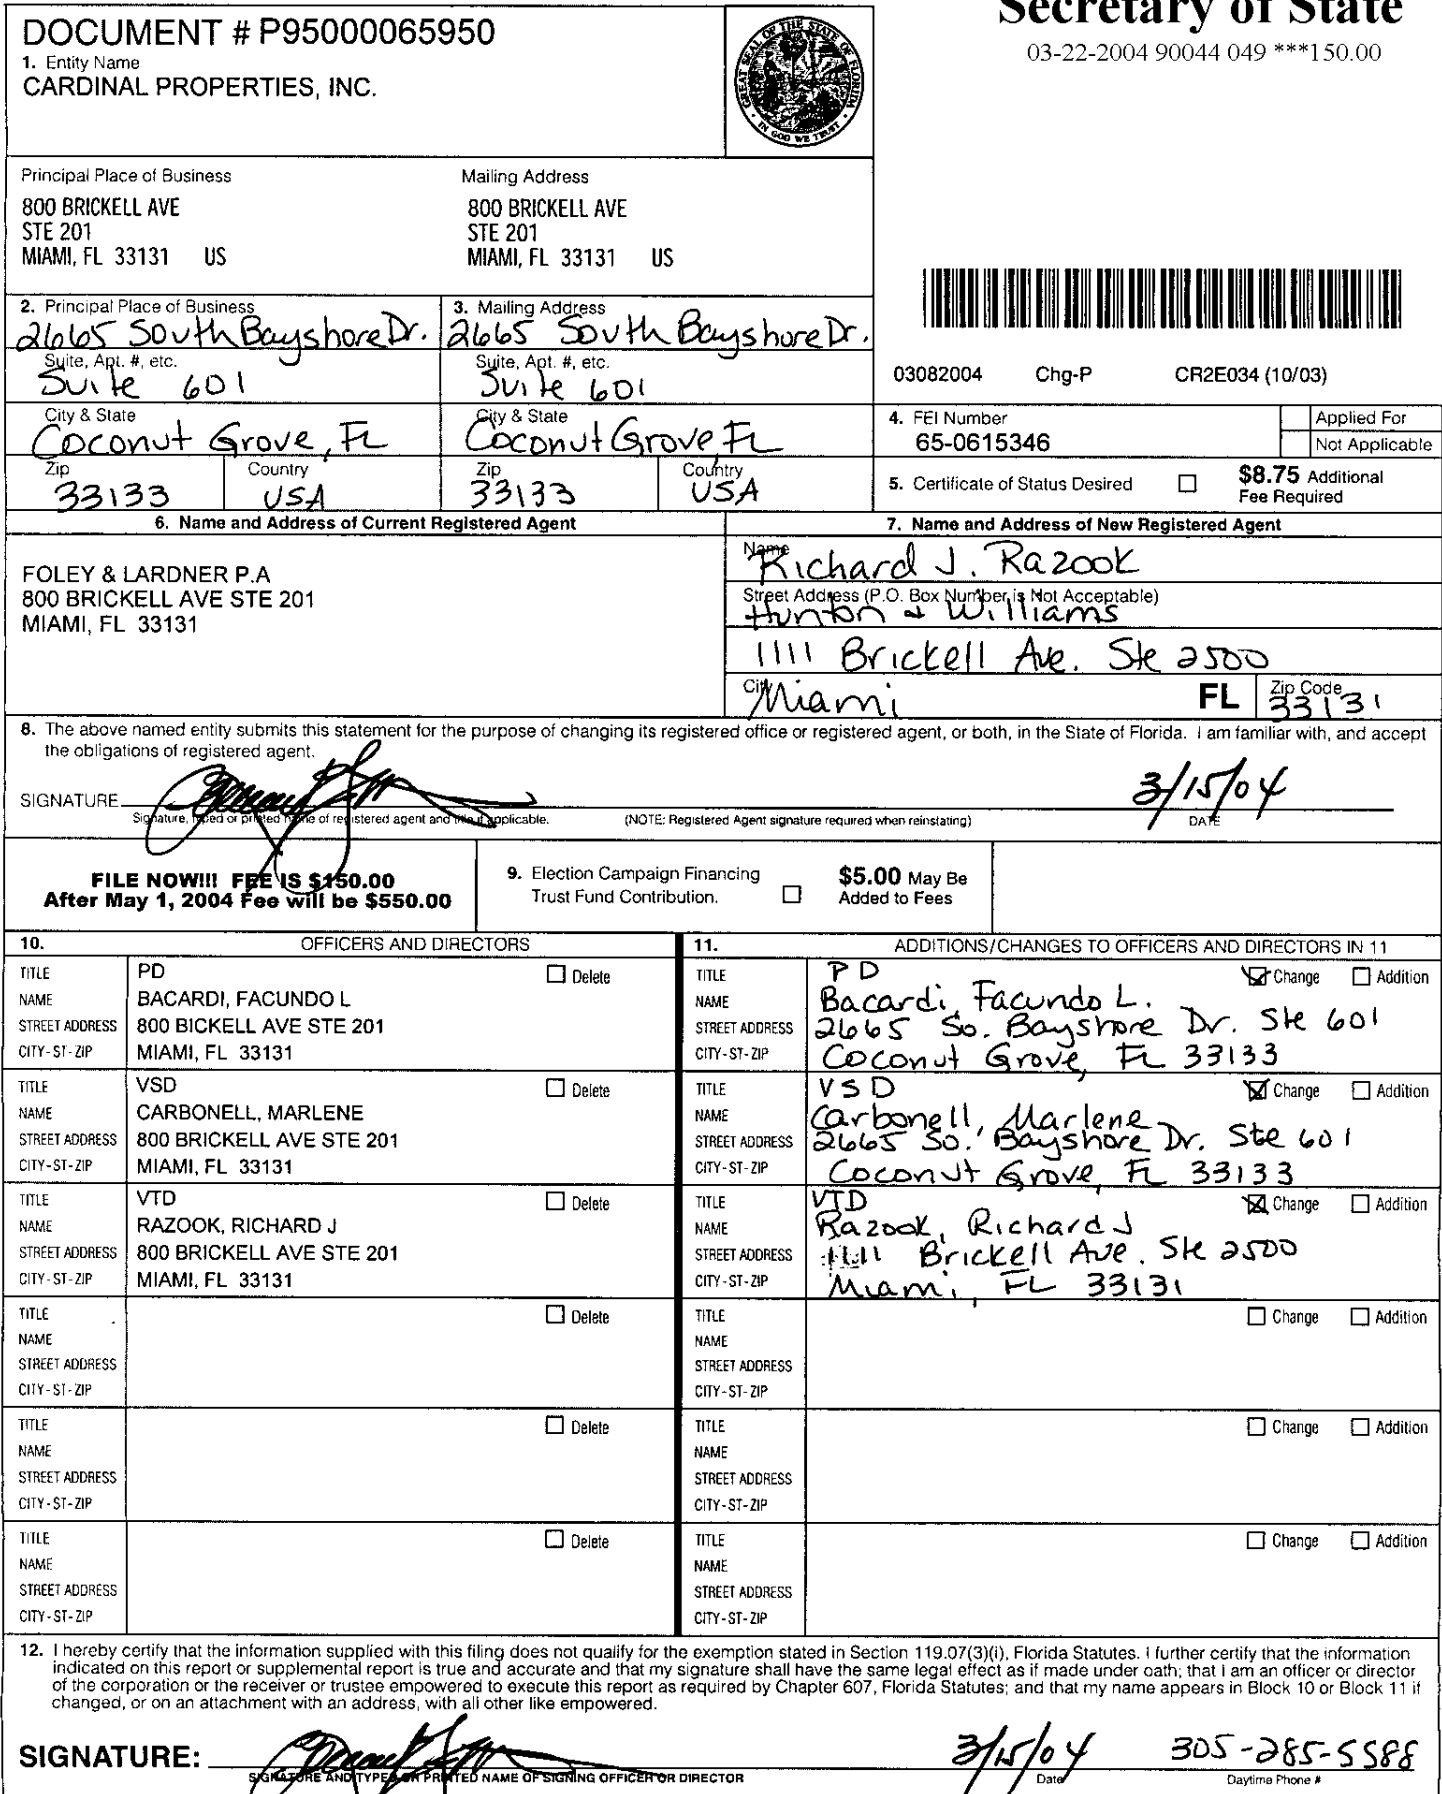 Secretary of State
03-22-2004 90044 049 ***150.00
DOCUMENT # P95000065950
1. Entity Name
CARDINAL PROPERTIES, INC.
GREAT SEAL OF THE STATE OF FLORIDA
IN GOD WE TRUST
Principal Place of Business
800 BRICKELL AVE
STE 201
MIAMI, FL 33131 US
Mailing Address
800 BRICKELL AVE
STE 201
MIAMI, FL 33131 US
2. Principal Place of Business
2665 South Bayshore Dr.
Suite, Apt. #, etc.
Suite 601
City & State
Coconut Grove, FL
Zip
33133
Country
USA
3. Mailing Address
2665 South Bayshore Dr.
Suite, Apt. #, etc.
Suite 601
City & State
Coconut Grove, FL
Zip
33133
Country
USA
03082004 Chg-P CR2E034 (10/03)
4. FEI Number
65-0615346
Applied For
Not Applicable
5. Certificate of Status Desired
$8.75 Additional
Fee Required
6. Name and Address of Current Registered Agent
FOLEY & LARDNER P.A
800 BRICKELL AVE STE 201
MIAMI, FL 33131
7. Name and Address of New Registered Agent
Name
Richard J. Razook
Street Address (P.O. Box Number is Not Acceptable)
Hunton & Williams
1111 Brickell Ave. Ste 2500
City
Miami
FL
Zip Code
33131
8. The above named entity submits this statement for the purpose of changing its registered office or registered agent, or both, in the State of Florida. I am familiar with, and accept
the obligations of registered agent.
SIGNATURE
3/15/04
Signature, typed or printed name of registered agent and title if applicable.
(NOTE: Registered Agent signature required when reinstating)
DATE
FILE NOW!!! FEE IS $150.00
After May 1, 2004 Fee will be $550.00
9. Election Campaign Financing
Trust Fund Contribution.
$5.00 May Be
Added to Fees
10. OFFICERS AND DIRECTORS
TITLE PD Delete
NAME BACARDI, FACUNDO L
STREET ADDRESS 800 BICKELL AVE STE 201
CITY-ST-ZIP MIAMI, FL 33131
TITLE VSD Delete
NAME CARBONELL, MARLENE
STREET ADDRESS 800 BRICKELL AVE STE 201
CITY-ST-ZIP MIAMI, FL 33131
TITLE VTD Delete
NAME RAZOOK, RICHARD J
STREET ADDRESS 800 BRICKELL AVE STE 201
CITY-ST-ZIP MIAMI, FL 33131
TITLE Delete
NAME
STREET ADDRESS
CITY-ST-ZIP
TITLE Delete
NAME
STREET ADDRESS
CITY-ST-ZIP
TITLE Delete
NAME
STREET ADDRESS
CITY-ST-ZIP
11. ADDITIONS/CHANGES TO OFFICERS AND DIRECTORS IN 11
TITLE PD Change Addition
NAME Bacardi, Facundo L.
STREET ADDRESS 2665 So. Bayshore Dr. Ste 601
CITY-ST-ZIP Coconut Grove, FL 33133
TITLE VSD Change Addition
NAME Carbonell, Marlene
STREET ADDRESS 2665 So. Bayshore Dr. Ste 601
CITY-ST-ZIP Coconut Grove, FL 33133
TITLE VTD Change Addition
NAME Razook, Richard J
STREET ADDRESS 1111 Brickell Ave. Ste 2500
CITY-ST-ZIP Miami, FL 33131
TITLE Change Addition
NAME
STREET ADDRESS
CITY-ST-ZIP
TITLE Change Addition
NAME
STREET ADDRESS
CITY-ST-ZIP
TITLE Change Addition
NAME
STREET ADDRESS
CITY-ST-ZIP
12. I hereby certify that the information supplied with this filing does not qualify for the exemption stated in Section 119.07(3)(i), Florida Statutes. I further certify that the information
indicated on this report or supplemental report is true and accurate and that my signature shall have the same legal effect as if made under oath; that I am an officer or director
of the corporation or the receiver or trustee empowered to execute this report as required by Chapter 607, Florida Statutes; and that my name appears in Block 10 or Block 11 if
changed, or on an attachment with an address, with all other like empowered.
SIGNATURE:
3/15/04
305-285-5588
SIGNATURE AND TYPED OR PRINTED NAME OF SIGNING OFFICER OR DIRECTOR
Date
Daytime Phone #